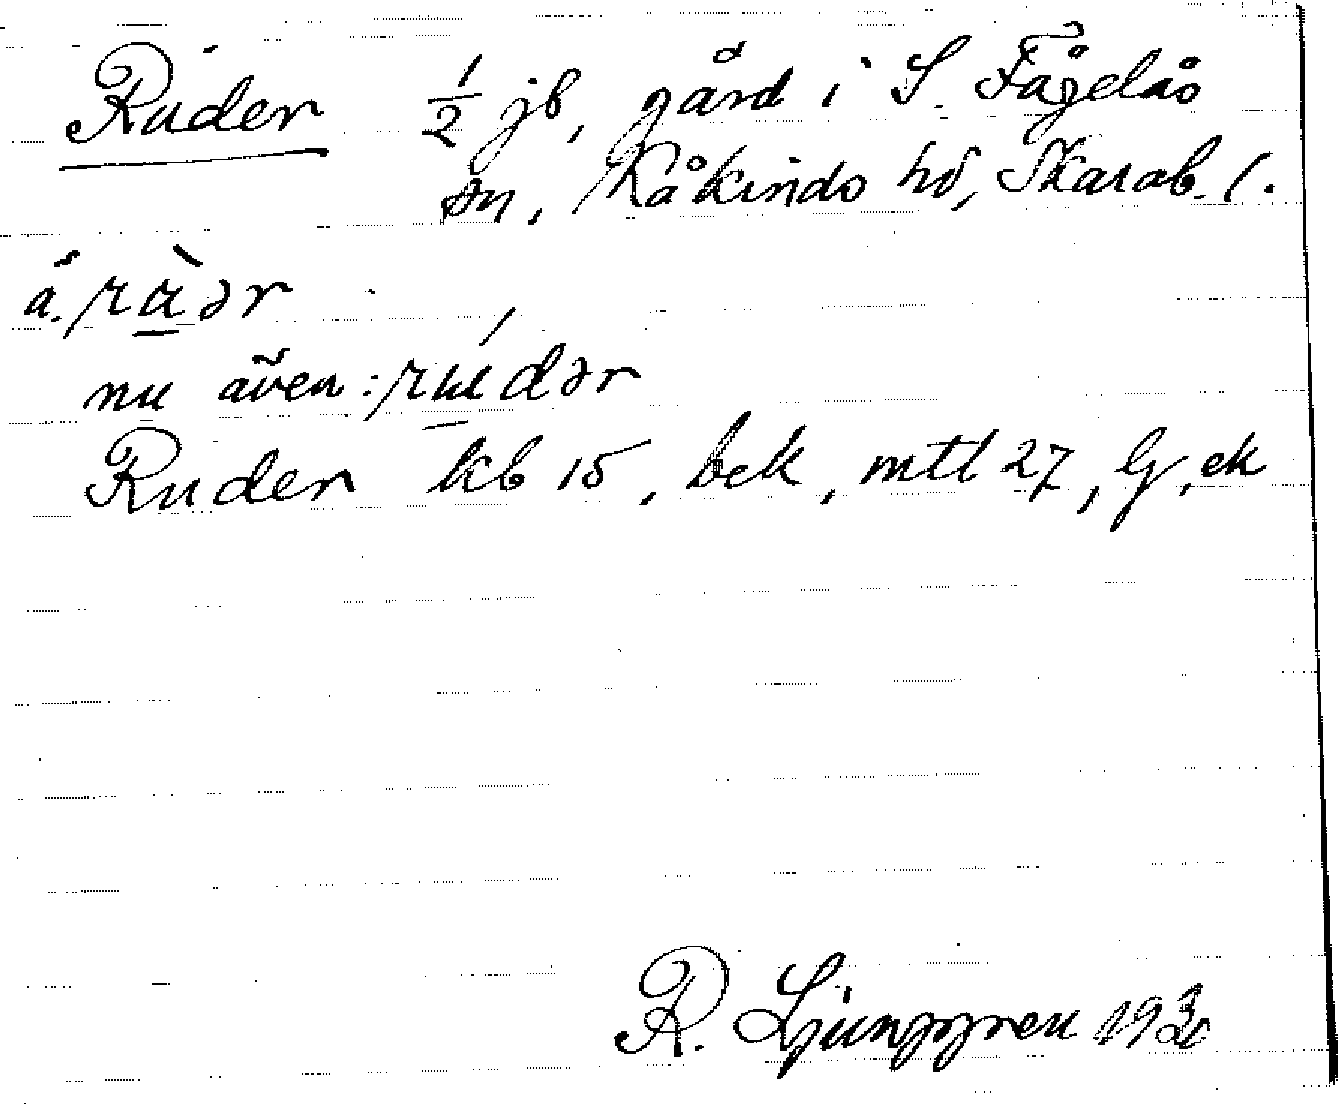 Ruder ½ jb, gård i S. Fågelås
sn, Kåkinds hd, Skarab. l.
ä. ràər
nu även: rúdər
Ruder kb 15, bek, mtl 27, Gj, ek
R. Ljunggren 193